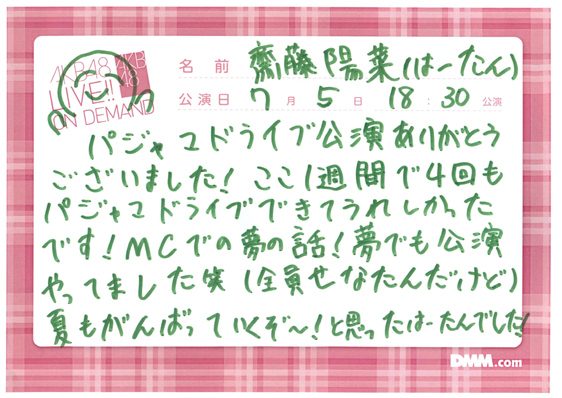 AKB48
LIVE!!
ON DEMAND
AKB
48
名 前 齋藤陽菜(はーたん)
公演日 7 月 5 日 18 : 30 公演
パジャマドライブ公演ありがとう
ございました! ここ1週間で4回も
パジャマドライブできてうれしかった
です!MCでの夢の話!夢でも公演
やってました笑(全員せなたんだけど)
夏もがんばっていくぞ〜!と思ったはーたんでした!
DMM.com